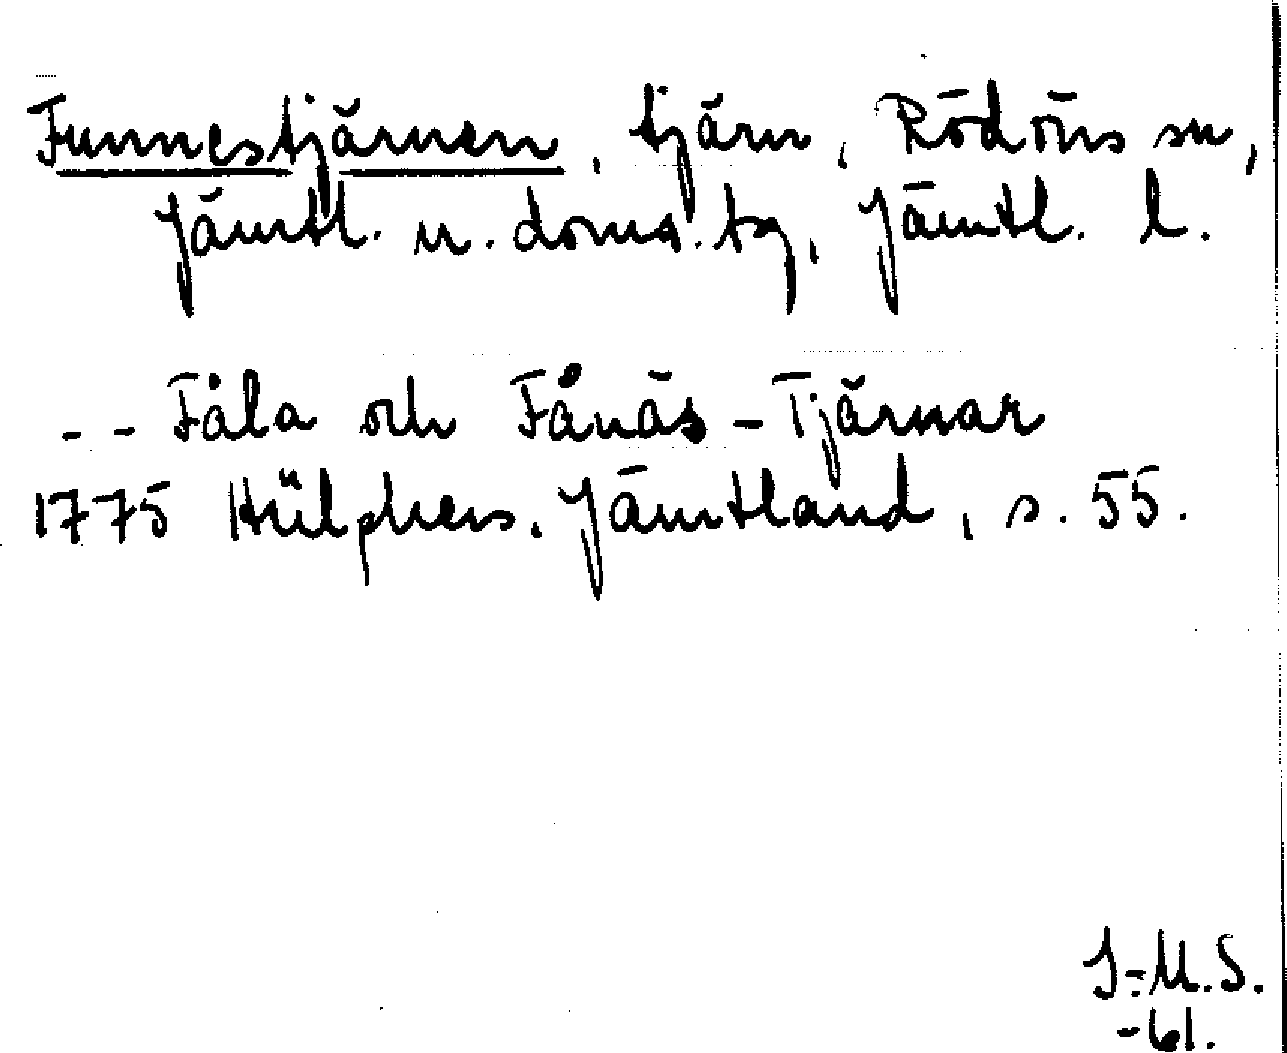 Funnestjärnen, tjärn, Rödöns sn,
Jämtl. n. doms. tg, Jämtl. l.
-- Fåla och Fånäs-Tjärnar
1775 Hülphers. Jämtland, s. 55.
I-M.S.
-61.